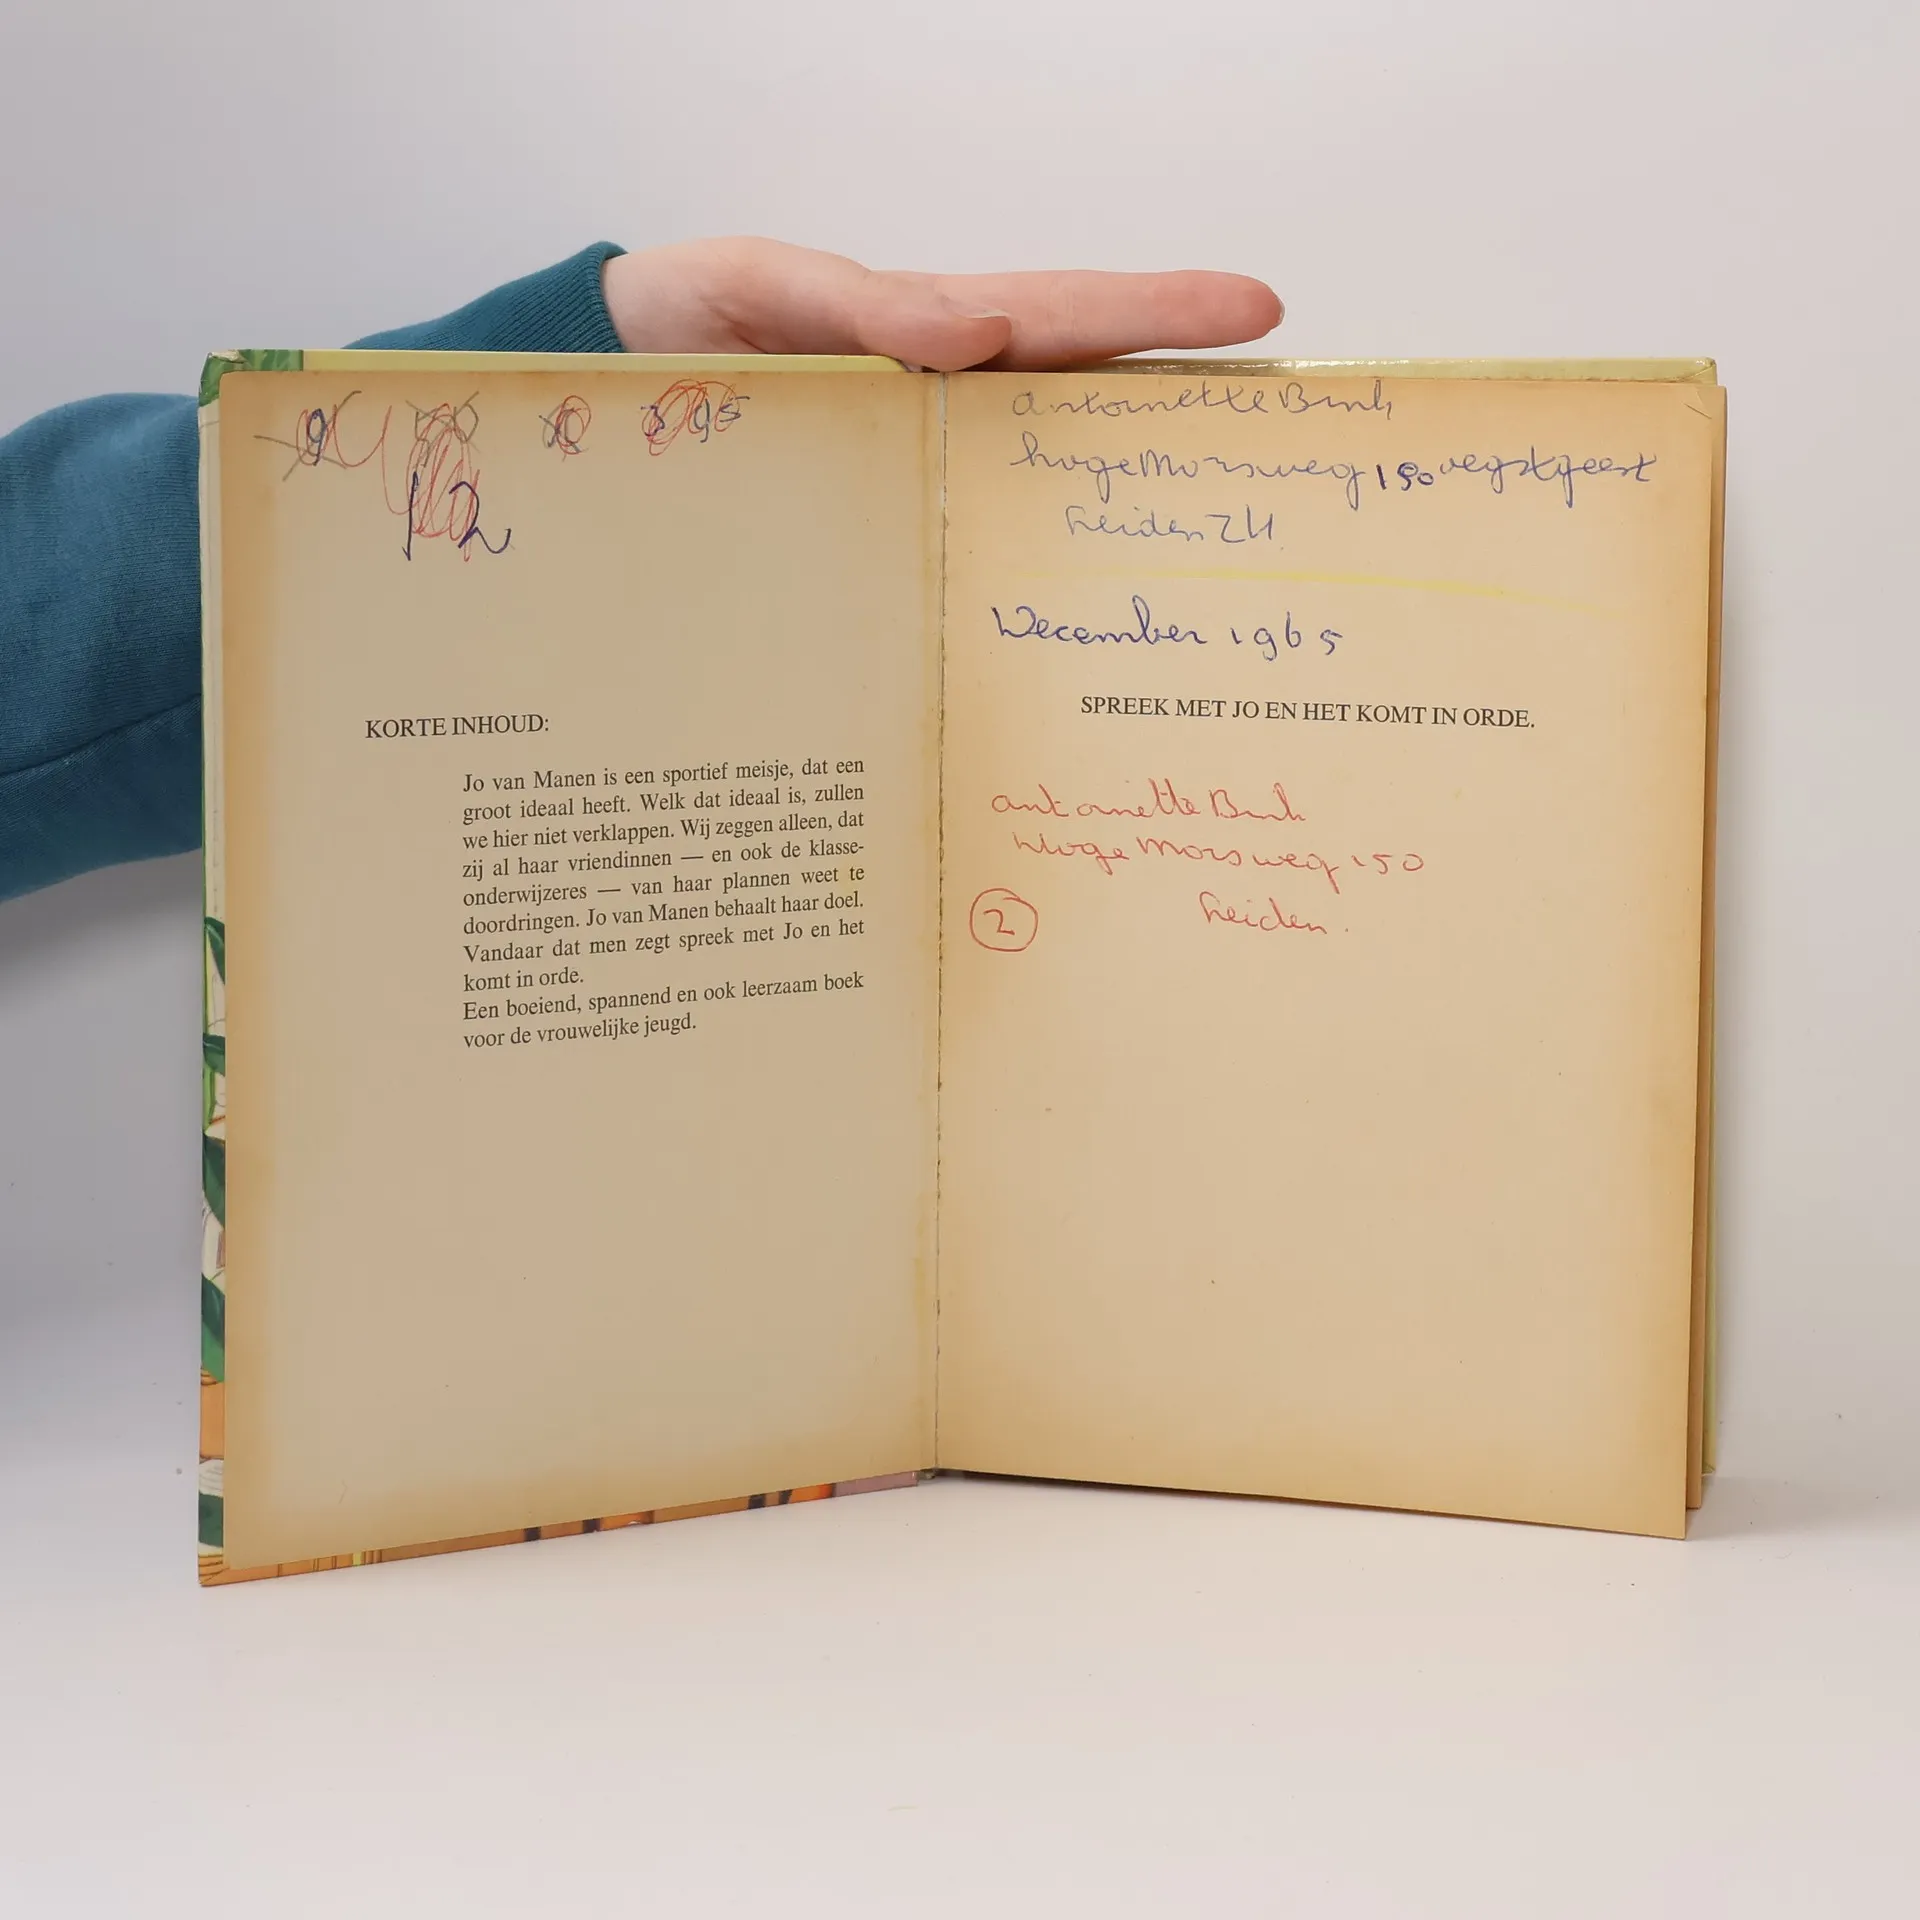 12
KORTE INHOUD:
Jo van Manen is een sportief meisje, dat een
groot ideaal heeft. Welk dat ideaal is, zullen
we hier niet verklappen. Wij zeggen alleen, dat
zij al haar vriendinnen — en ook de klasse-
onderwijzeres — van haar plannen weet te
doordringen. Jo van Manen behaalt haar doel.
Vandaar dat men zegt spreek met Jo en het
komt in orde.
Een boeiend, spannend en ook leerzaam boek
voor de vrouwelijke jeugd.
antoinette
hogeMorsweg 150 oegstgeest
Leiden ZH
December 1965
SPREEK MET JO EN HET KOMT IN ORDE.
antoinette
Hoge Morsweg 150
2 Leiden.